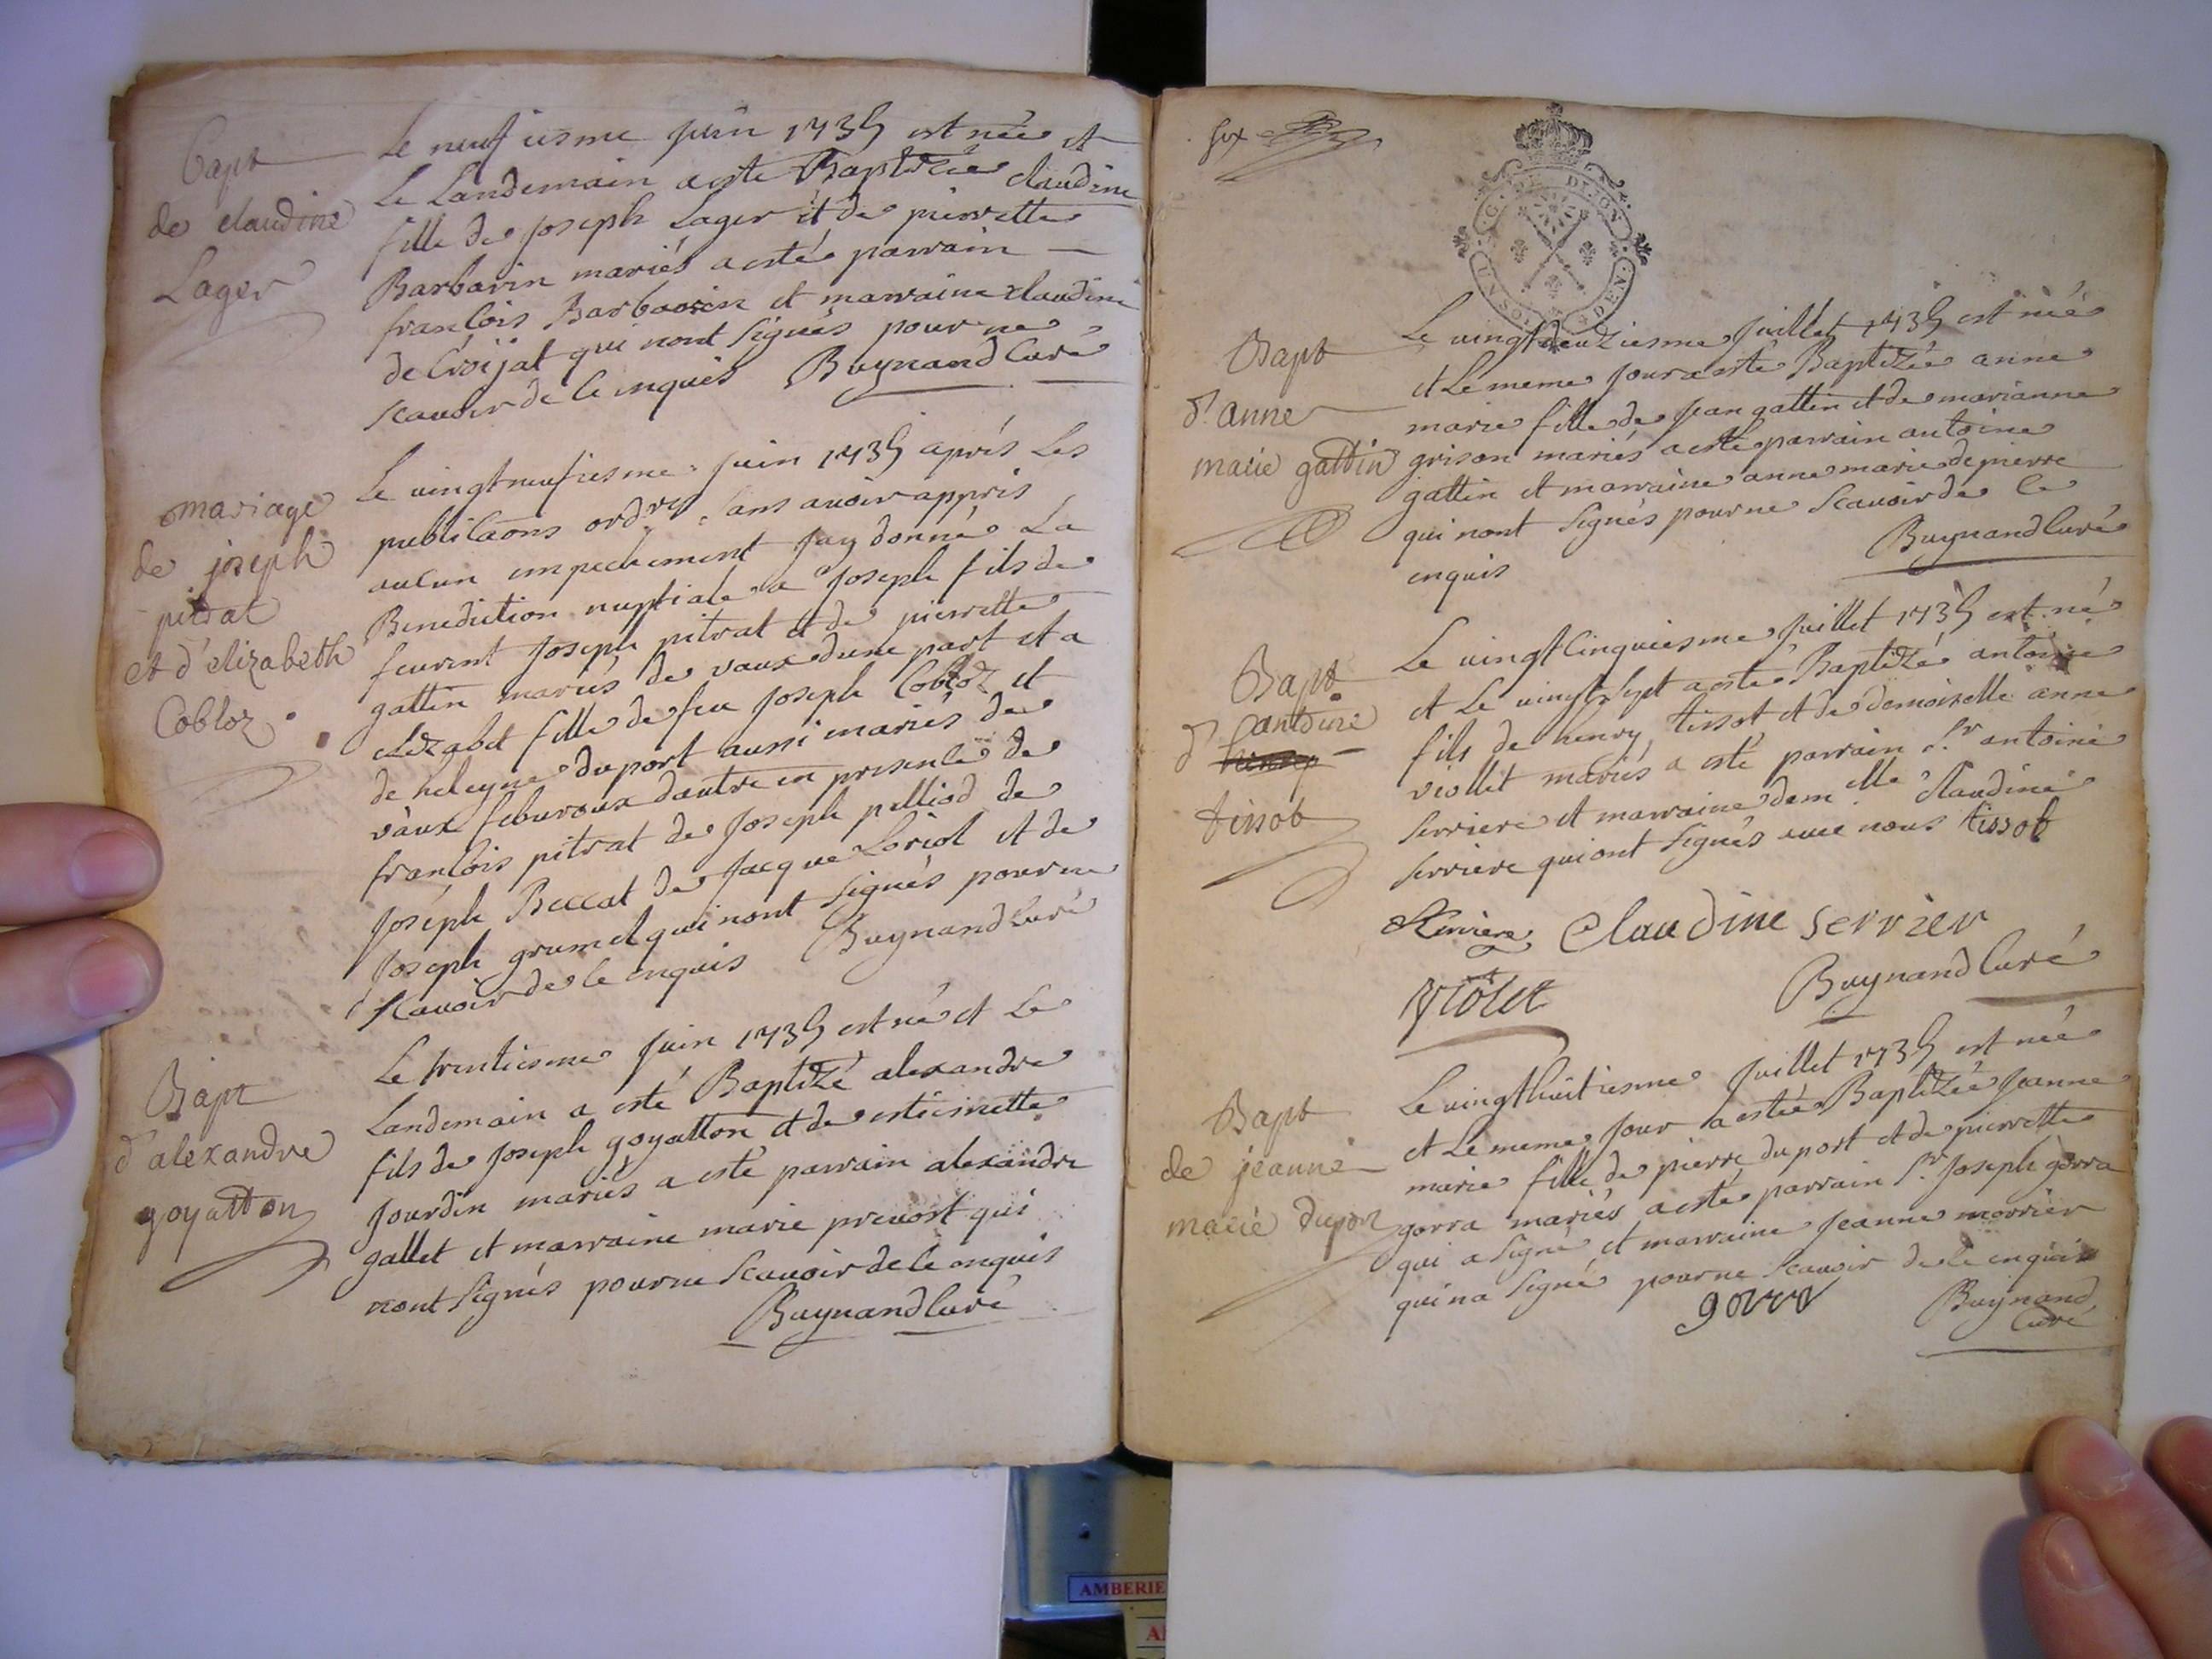 Bapt
de claudine
Lager
Le neufiesme juin 1735 est née et
Le Landemain a esté Baptizée claudine
fille de joseph Lager et de pierrette
Barbarin mariés a esté parrain
francois Barbarin et marraine claudine
de Croijat qui nont signés pour ne
scavoir de ce enquis Buynand Curé
mariage
de joseph
pitrat
et d'elizabeth
Cobloz
Le vingtneufiesme juin 1735 aprés Les
publicaons ordres sans avoir appris
aucun empechement jay donné La
Benediction nuptiale a joseph fils de
feurent joseph pitrat et de pierrette
gattin mariés de vaux dune part et a
elizabet fille de feu joseph Cobloz et
de heleyne duport aussi mariés de
vaux feburoux dautre en presence de
francois pitrat de joseph pelliod de
joseph Beccat de jacque Loriol et de
joseph grumel qui nont signés pour ne
scavoir de ce enquis Buynand Curé
Bapt
d'alexandre
goyatton
Le trentiesme juin 1735 est né et Le
Landemain a esté Baptizé alexandre
fils de joseph goyatton et de estiennette
jourdin mariés a esté parrain alexandre
gallet et marraine marie prevost qui
nont signés pour ne scavoir de ce enquis
Buynand Curé
six
DIJON
Bapt
d'anne
marie gattin
Le vingtdeuziesme juillet 1735 est née
et Le meme jour a esté Baptizée anne
marie fille de jean gattin et de marianne
grison mariés a esté parrain antoine
gattin et marraine anne marie depierre
qui nont signés pour ne scavoir de ce
enquis
Buynand Curé
Bapt
d'antoine
tissot
Le vingtcinquiesme juillet 1735 est né
et Le vingt sept a esté Baptizé antoine
fils de henry tissot et de demoiselle anne
viollet mariés a esté parrain Sr antoine
serriere et marraine demelle claudine
serriere qui ont signés avec nous tissot
Serriere Claudine serrier
Violet
Buynand Curé
Bapt
de jeanne
marie duport
Le vingthuitiesme juillet 1735 est née
et Le meme jour a estée Baptizée jeanne
marie fille de pierre duport et de pierrette
gorra mariés a esté parrain Sr joseph gorra
qui a signé et marraine jeanne morrier
qui na signé pour ne scavoir de ce enquis
gorra
Buynand
Curé
AMBERIE